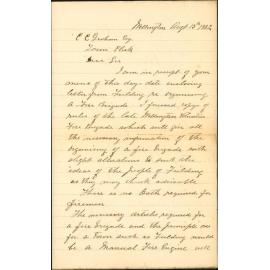 Wellington Sept 15th 1882
C C Graham Esq
Town Clerk
Dear Sir
I am in receipt of yours
of this day date enclosing
letter from Feilding re organising
A Fire Brigade I forward copy of
rules of the late Wellington Volunteer
Fire Brigade which will give all
the necessary information of the
organising of a fire brigade with
slight alterations to suit the
ideas of the people of Feilding
as they may think advisable
There is no Oath required for
firemen
The necessary articles required for
a fire brigade and the principle one
for a Town such as Feilding would
be a Manual Fire Engine with